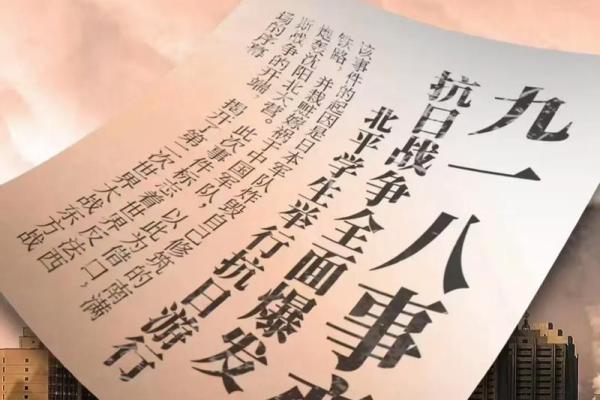 九一八事
抗日战争全面爆发
北平学生举行抗日游行
该事件的起因是日本军队炸毁自己修筑的南满
铁路，并栽赃嫁祸于中国军队，以此为借口，
炮轰沈阳北大营。此次事件标志着世界反法西
斯战争的开端，揭开了第二次世界大战东方战
场的序幕